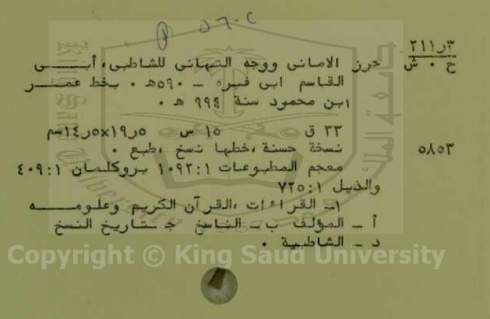 ٢١١٫٣
ح ٠ ش
حرز الامانى ووجه التهانى للشاطبى، أبـــى
القاسم ابى فيره - ٥٩٠هـ ٠ بخط عمـــر
ابن محمود سنة ٩٩٤ هـ ٠
٣٣ ق ١٥ س ١٩٫٥x١٤٫٥سم
٥٨٥٣
نسخة حسنة، خطها نسخ، طبع ٠
معجم المطبوعات ١٠٩٢:١ بروكلمان ٤٠٩:١
والذيل ٧٢٥:١
١- القراءات، القرآن الكريم وعلومـــه
أ - المؤلف ب - الناسخ جـ - تاريخ النسخ
د - الشاطبية ٠
Copyright © King Saud University